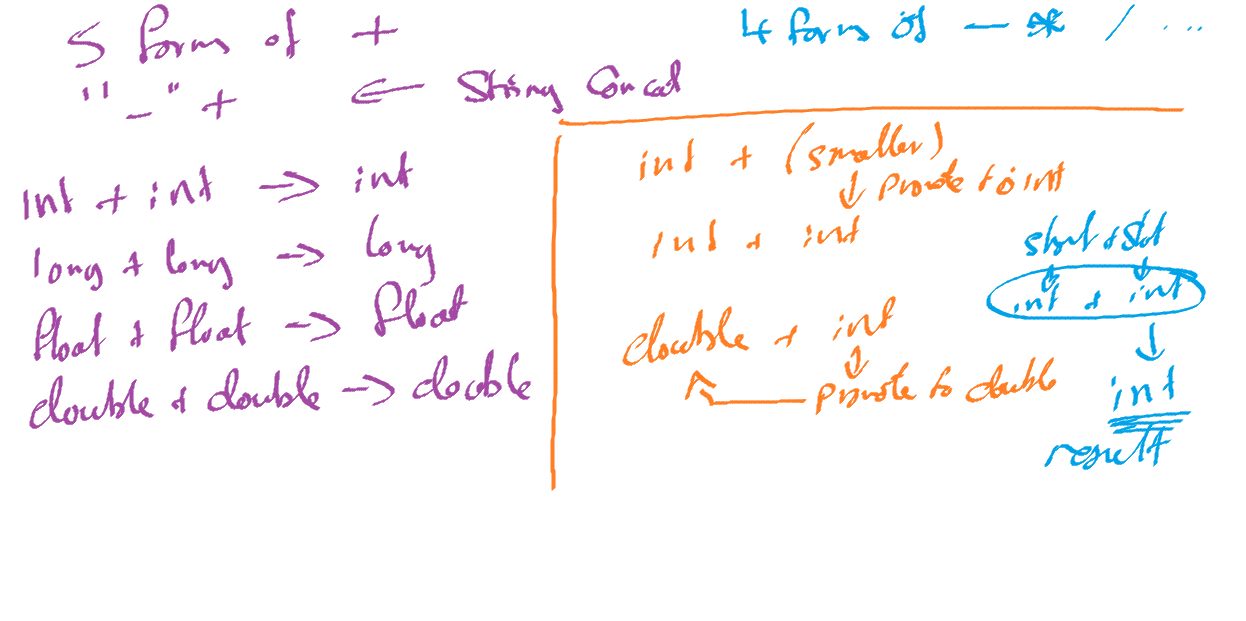 5 forms of +
"_" + ← String Concat
int + int → int
long + long → long
float + float → float
double + double → double
4 forms of - * / ...
int + (smaller)
↓ promote to int
int + int
double + int
↓
promote to double
short + short
↓ ↓
int + int
↓
int
result